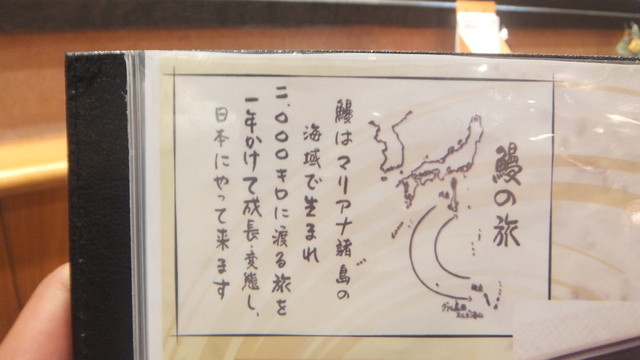 鰻の旅
鰻はマリアナ諸島の
海域で生まれ
二、〇〇〇キロに渡る旅を
一年かけて成長・変態し、
日本にやって来ます